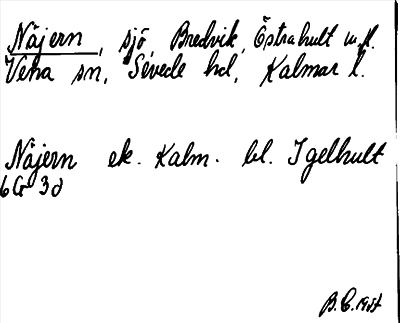 Näjern, sjö, Bredvik, Östrahult m.fl.
Vena sn, Sevede hd, Kalmar l.
Näjern ek. Kalm. bl. Igelhult
6G 3d